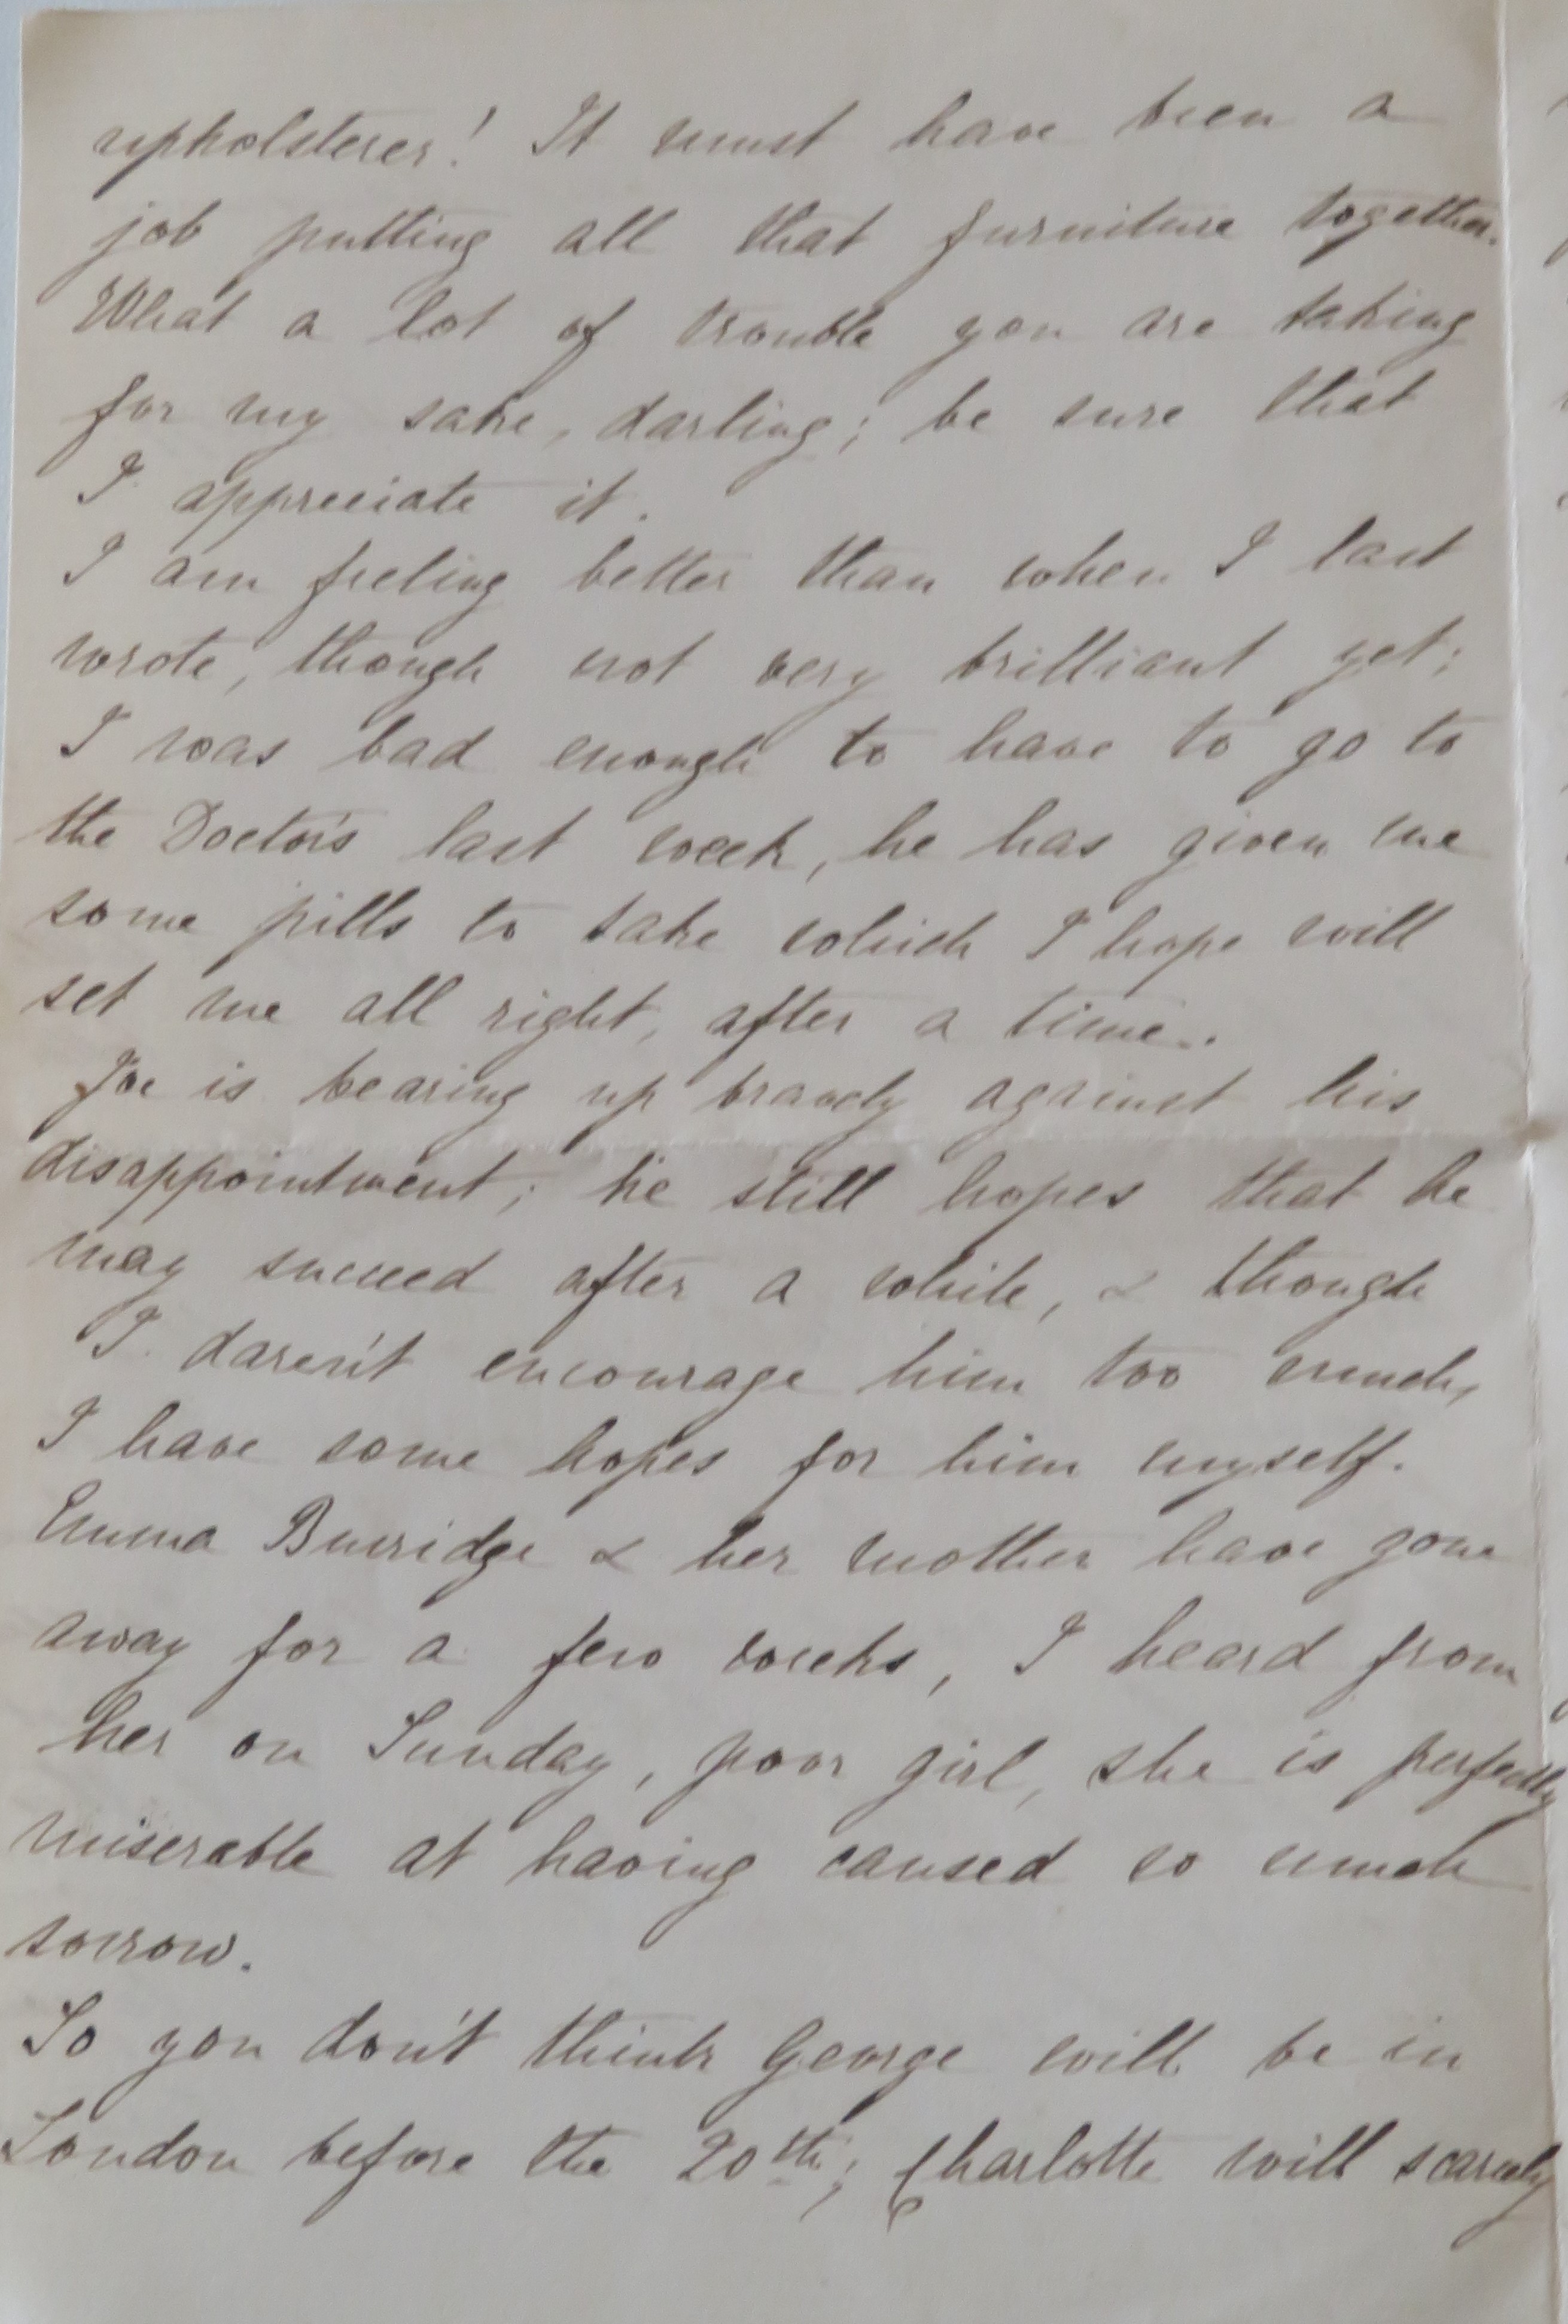 upholsterer! It must have been a
job putting all that furniture together.
What a lot of trouble you are taking
for my sake, darling; be sure that
I appreciate it.
I am feeling better than when I last
wrote, though not very brilliant yet;
I was bad enough to have to go to
the Doctor's last week, he has given me
some pills to take which I hope will
set me all right, after a time.
Joe is bearing up bravely against his
disappointment; he still hopes that he
may succeed after a while, & though
I daren't encourage him too much,
I have some hopes for him myself.
Emma Burridge & her mother have gone
away for a few weeks, I heard from
her on Sunday, poor girl, she is perfectly
miserable at having caused so much
sorrow.
So you don't think George will be in
London before the 20th; Charlotte will scarcely